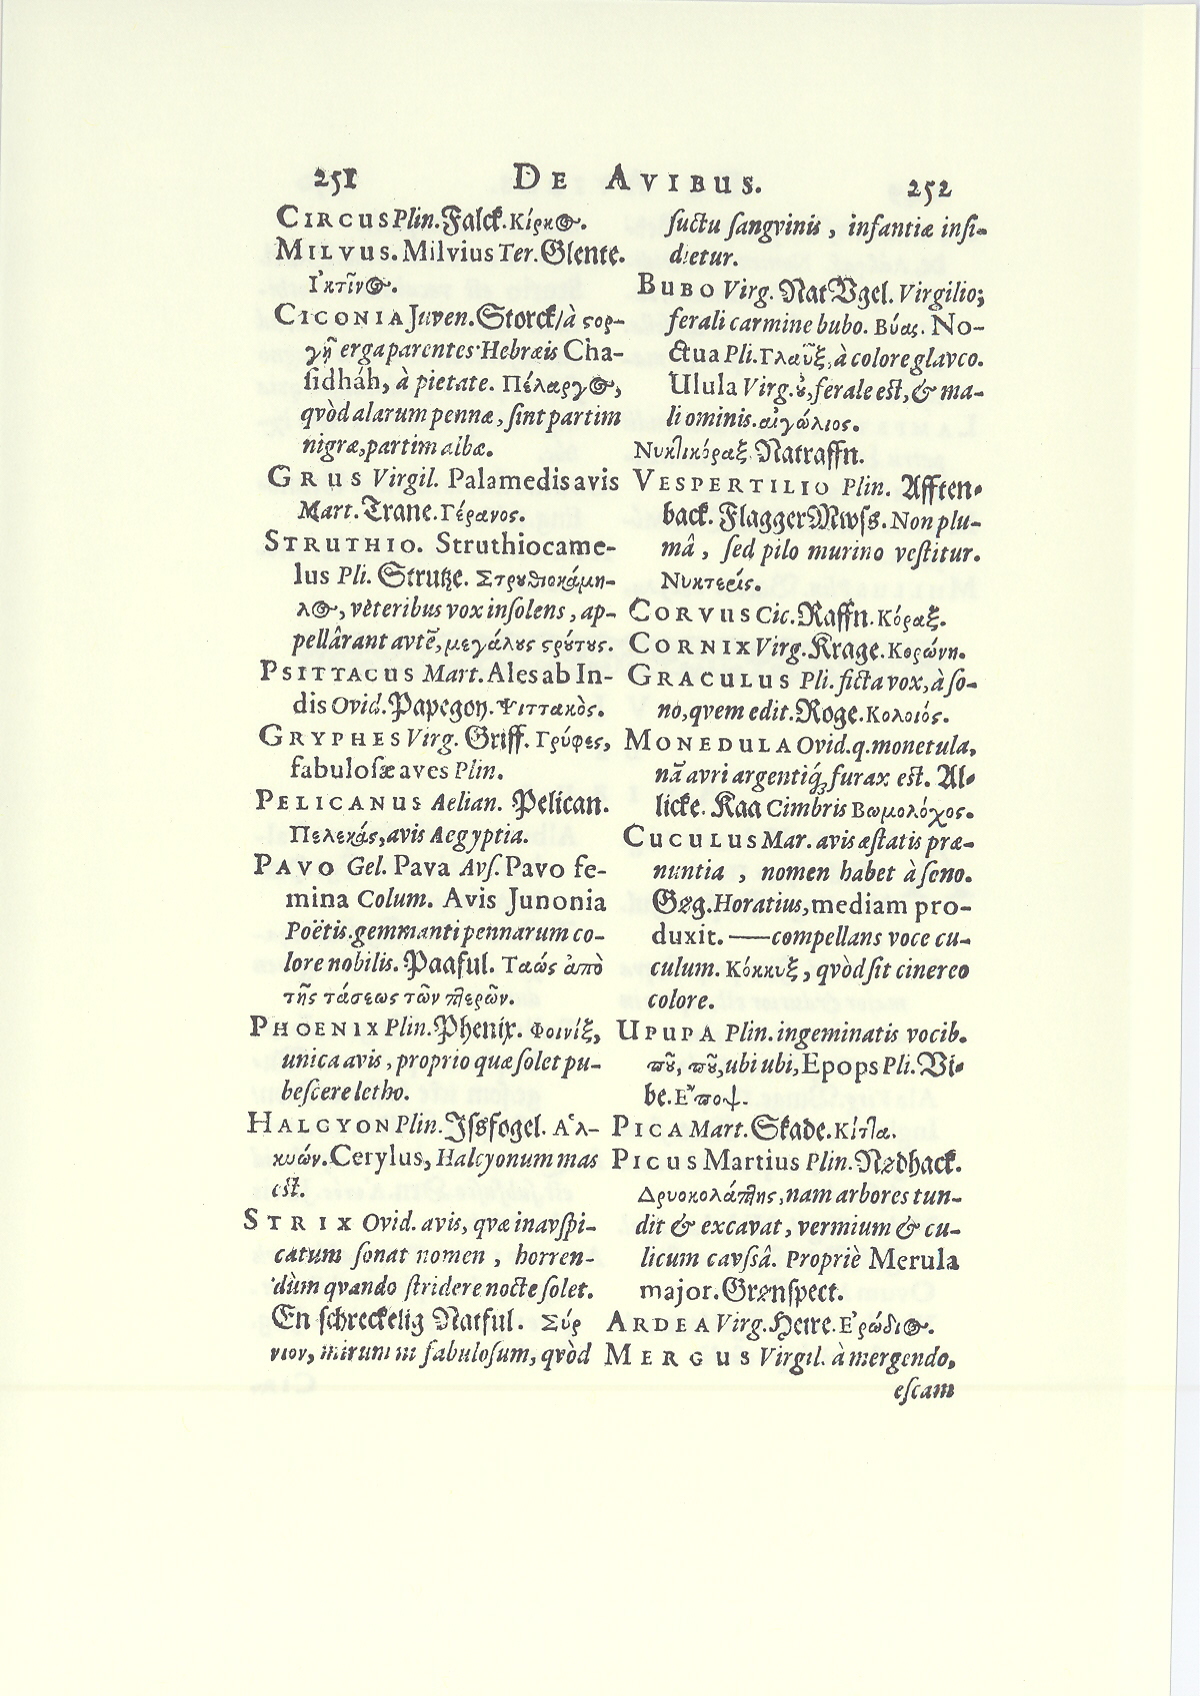 251 DE AVIBUS. 252
CIRCUS Plin. Falck. Κίρκ&#x1F7;.
MILVUS. Milvius Ter. Glente.
Ἰκτῖνος.
CICONIA Juven. Storck/ à ϛορ-
γῇ erga parentes. Hebræis Cha-
sidháh, à pietate. Πέλαργος,
qvòd alarum pennæ, sint partim
nigræ, partim albæ.
GRUS Virgil. Palamedis avis
Mart. Trane. Γέρανος.
STRUTHIO. Struthiocame-
lus Pli. Strutze. Στρουθιοκάμη-
λος, veteribus vox insolens, ap-
pellârant avtẽ, μεγάλους ϛρούτους.
PSITTACUS Mart. Ales ab In-
dis Ovid. Papegoy. Ψιττακὸς.
GRYPHES Virg. Griff. Γρύφες,
fabulosæ aves Plin.
PELICANUS Aelian. Pelican.
Πελεκάς, avis Aegyptia.
PAVO Gel. Pava Avs. Pavo fe-
mina Colum. Avis Junonia
Poëtis. gemmanti pennarum co-
lore nobilis. Paaful. Ταώς ἀπὸ
τῆς τάσεως τῶν πτερῶν.
PHOENIX Plin. Phenix. Φοινίξ,
unica avis, proprio quæ solet pu-
bescere letho.
HALCYON Plin. Jssfogel. Ἁλ-
κυών. Cerylus, Halcyonum mas
est.
STRIX Ovid. avis, qvæ inavspi-
catum sonat nomen, horren-
dùm qvando stridere nocte solet.
En schreckelig Natful. Σύρ
νιον, mirum ni fabulosum, qvòd
suctu sangvinis, infantiæ insi-
dietur.
BUBO Virg. Nat Vgel. Virgilio;
ferali carmine bubo. Βύας. No-
ctua Pli. Γλαῦξ, à colore glavco.
Ulula Virg. ȣ, ferale est, & ma-
li ominis. αἰγώλιος.
Νυκτικόραξ. Natraffn.
VESPERTILIO Plin. Afften-
back. FlaggerMwss. Non plu-
mâ, sed pilo murino vestitur.
Νυκτερίς.
CORVUS Cic. Raffn. Κόραξ.
CORNIX Virg. Krage. Κορώνη.
GRACULUS Pli. ficta vox, à so-
no, qvem edit. Roge. Κολοιός.
MONEDULA Ovid. q. monetula,
nã avri argentiq; furax est. Al-
licke. Kaa Cimbris Βωμολόχος.
CUCULUS Mar. avis æstatis præ-
nuntia, nomen habet à sono.
Gøg. Horatius, mediam pro-
duxit. —compellans voce cu-
culum. Κόκκυξ, qvòd sit cinereo
colore.
UPUPA Plin. ingeminatis vocib.
ποῦ, ποῦ, ubi ubi, Epops Pli. Vi-
be. Ἔποψ.
PICA Mart. Skade. Κίττα.
PICUS Martius Plin. Nødhack.
Δρυοκολάπτης, nam arbores tun-
dit & excavat, vermium & cu-
licum cavssâ. Propriè Merula
major. Grønspect.
ARDEA Virg. Heire. Ἐρώδιος.
MERGUS Virgil. à mergendo,
escam